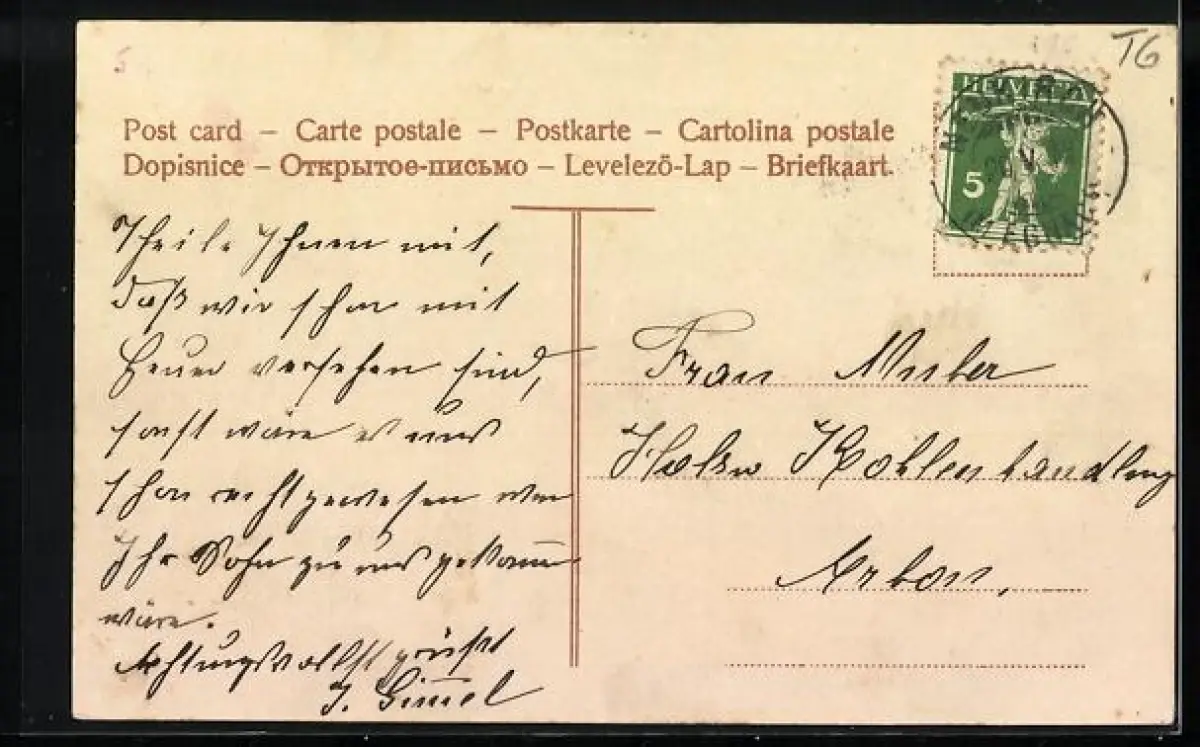 5
T6
HELVETIA
5
Post card – Carte postale – Postkarte – Cartolina postale
Dopisnice – Открытое-письмо – Levelezö-Lap – Briefkaart.
Theile Ihnen mit,
daß wir schon mit
versehen sind,
sonst wäre es uns
schon recht gewesen wen
Ihr Sohn zu uns gekom̅en
wäre.
Achtungsvollst grüßt
J. Gim̅el
Frau Huber
Kohlenhandlung
Arbon.